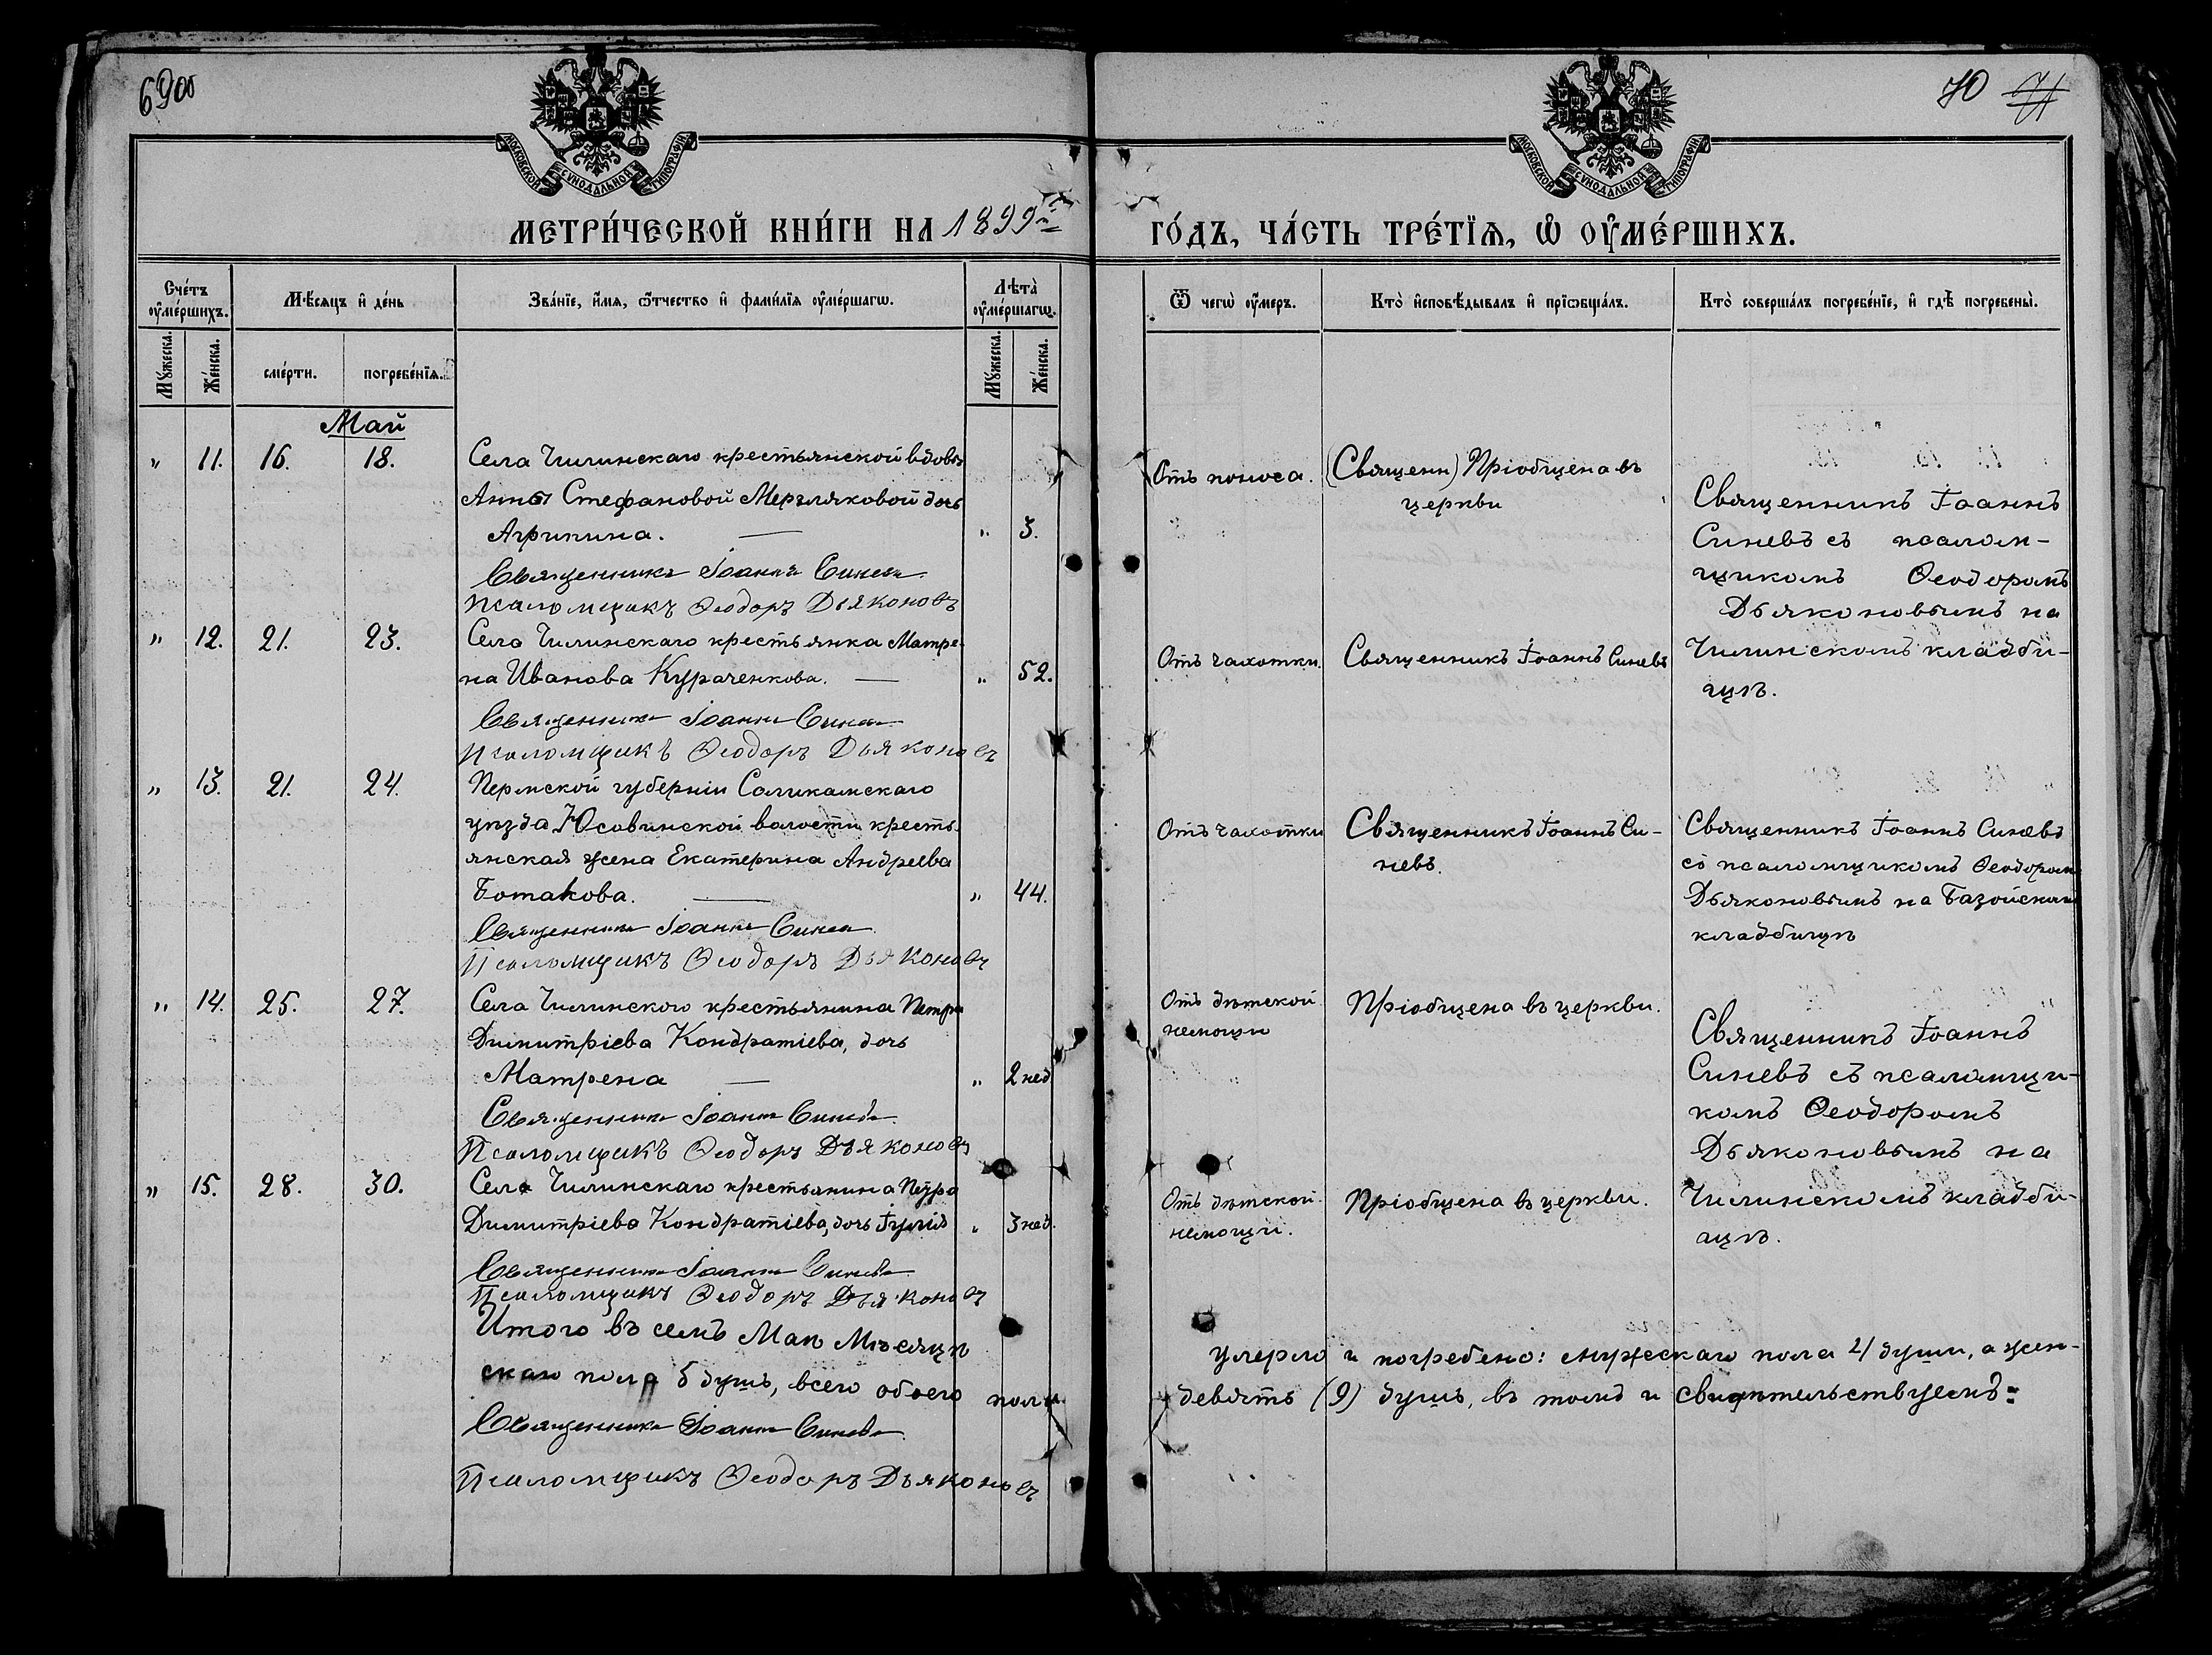 69об
70 71
МОСКОВСКОЙ СѴНОДАЛЬНОЙ ТИПОГРАФІИ
МОСКОВСКОЙ СѴНОДАЛЬНОЙ ТИПОГРАФІИ
МЕТРИ́ЧЕСКОЙ КНИ́ГИ НА 1899й
ГО́ДЪ, ЧА́СТЬ ТРЕ́ТЇѦ, Ѽ ОУ҆МЕ́РШИХЪ.
Сче́тъ оу҆ме́ршихъ.
Мꙋ́жеска.
Же́нска.
Мѣ́сѧцъ и҆ де́нь
сме́рти.
погребе́нїѧ.
Зва́нїе, и҆́мѧ, ѻ҆́тчество и҆ фами́лїѧ оу҆ме́ршагѡ.
Лѣта̀ оу҆ме́ршагѡ.
Мꙋ́жеска.
Же́нска.
Ѿ чегѡ̀ оу҆́меръ.
Кто̀ и҆сповѣ́дывалъ и҆ прїѡбща́лъ.
Кто̀ соверша́лъ погребе́нїе, и҆ гдѣ̀ погребены̀.
Май
" 11. 16. 18. Села Чилинскаго крестьянской вдовы
Анны Стефановой Мерзляковой дочь
Агрипина. — " 3.
Священникъ Іоаннъ Синевъ
Псаломщикъ Ѳеодоръ Дьяконовъ
Отъ поноса.
(Священн) Пріобщена въ
церкви
Священникъ Іоаннъ
Синевъ съ псалом-
щикомъ Ѳеодоромъ
Дьяконовымъ на
Чилинскомъ кладби-
щѣ.
" 12. 21. 23. Села Чилинскаго крестьянка Матре-
на Иванова Кураченкова. — " 52.
Священникъ Іоаннъ Синевъ
Псаломщикъ Ѳеодоръ Дьяконовъ
Отъ чахотки.
Священникъ Іоаннъ Синевъ
" 13. 21. 24. Пермской губерніи Соликамскаго
уѣзда Юсовинской волости кресть-
янская жена Екатерина Андреева
Ботакова. — " 44.
Священникъ Іоаннъ Синевъ
Псаломщикъ Ѳеодоръ Дьяконовъ
Отъ чахотки
Священникъ Іоаннъ Си-
невъ.
Священникъ Іоаннъ Синевъ
съ псаломщикомъ Ѳеодоромъ
Дьяконовымъ на Базойскомъ
кладбищѣ
" 14. 25. 27. Села Чилинского крестьянина Петра
Димитріева Кондратіева, дочь
Матрена — " 2 нед
Священникъ Іоаннъ Синевъ
Псаломщикъ Ѳеодоръ Дьяконовъ
Отъ дѣтской
немощи
Пріобщена въ церкви.
Священникъ Іоаннъ
Синевъ съ псаломщи-
комъ Ѳеодоромъ
Дьяконовымъ на
Чилинскомъ кладби-
щѣ.
" 15. 28. 30. Села Чилинскаго крестьянина Петра
Димитріева Кондратіева, дочь Іулія " 3 нед.
Священникъ Іоаннъ Синевъ
Псаломщикъ Ѳеодоръ Дьяконовъ
Отъ дѣтской
немощи.
Пріобщена въ церкви.
Итого въ семъ Маѣ Мѣсяцѣ умерло и погребено: мужескаго пола 4 души, а жен-
скаго пола 5 душъ, всего обоего пола девять (9) душъ, въ томъ и свидѣтельствуемъ:
Священникъ Іоаннъ Синевъ
Псаломщикъ Ѳеодоръ Дьяконовъ